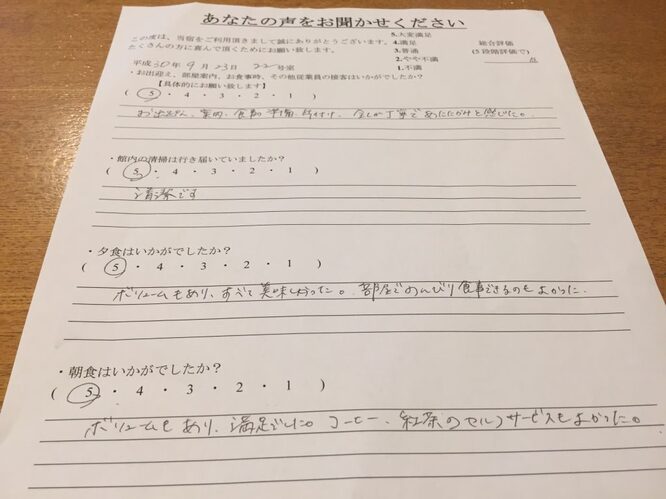 あなたの声をお聞かせください
この度は、当宿をご利用頂きまして誠にありがとうございます。
たくさんの方に喜んで頂くためにお願い致します。
5.大変満足
4.満足
3.普通
2.やや不満
1.不満
総合評価
(5段階評価で)
点
平成30年9月23日 号室
・お出迎え、部屋案内、お食事時、その他従業員の接客はいかがでしたか?
【具体的にお願い致します】
( 5 ・ 4 ・ 3 ・ 2 ・ 1 )
お出迎え、案内、食事の準備、片付け、全てが丁寧であたたかみを感じた。
・館内の清掃は行き届いていましたか?
( 5 ・ 4 ・ 3 ・ 2 ・ 1 )
清潔です
・夕食はいかがでしたか?
( 5 ・ 4 ・ 3 ・ 2 ・ 1 )
ボリュームもあり、すべて美味しかった。部屋でのんびり食事できるのもよかった。
・朝食はいかがでしたか?
( 5 ・ 4 ・ 3 ・ 2 ・ 1 )
ボリュームもあり、満足でした。コーヒー、紅茶のセルフサービスもよかった。